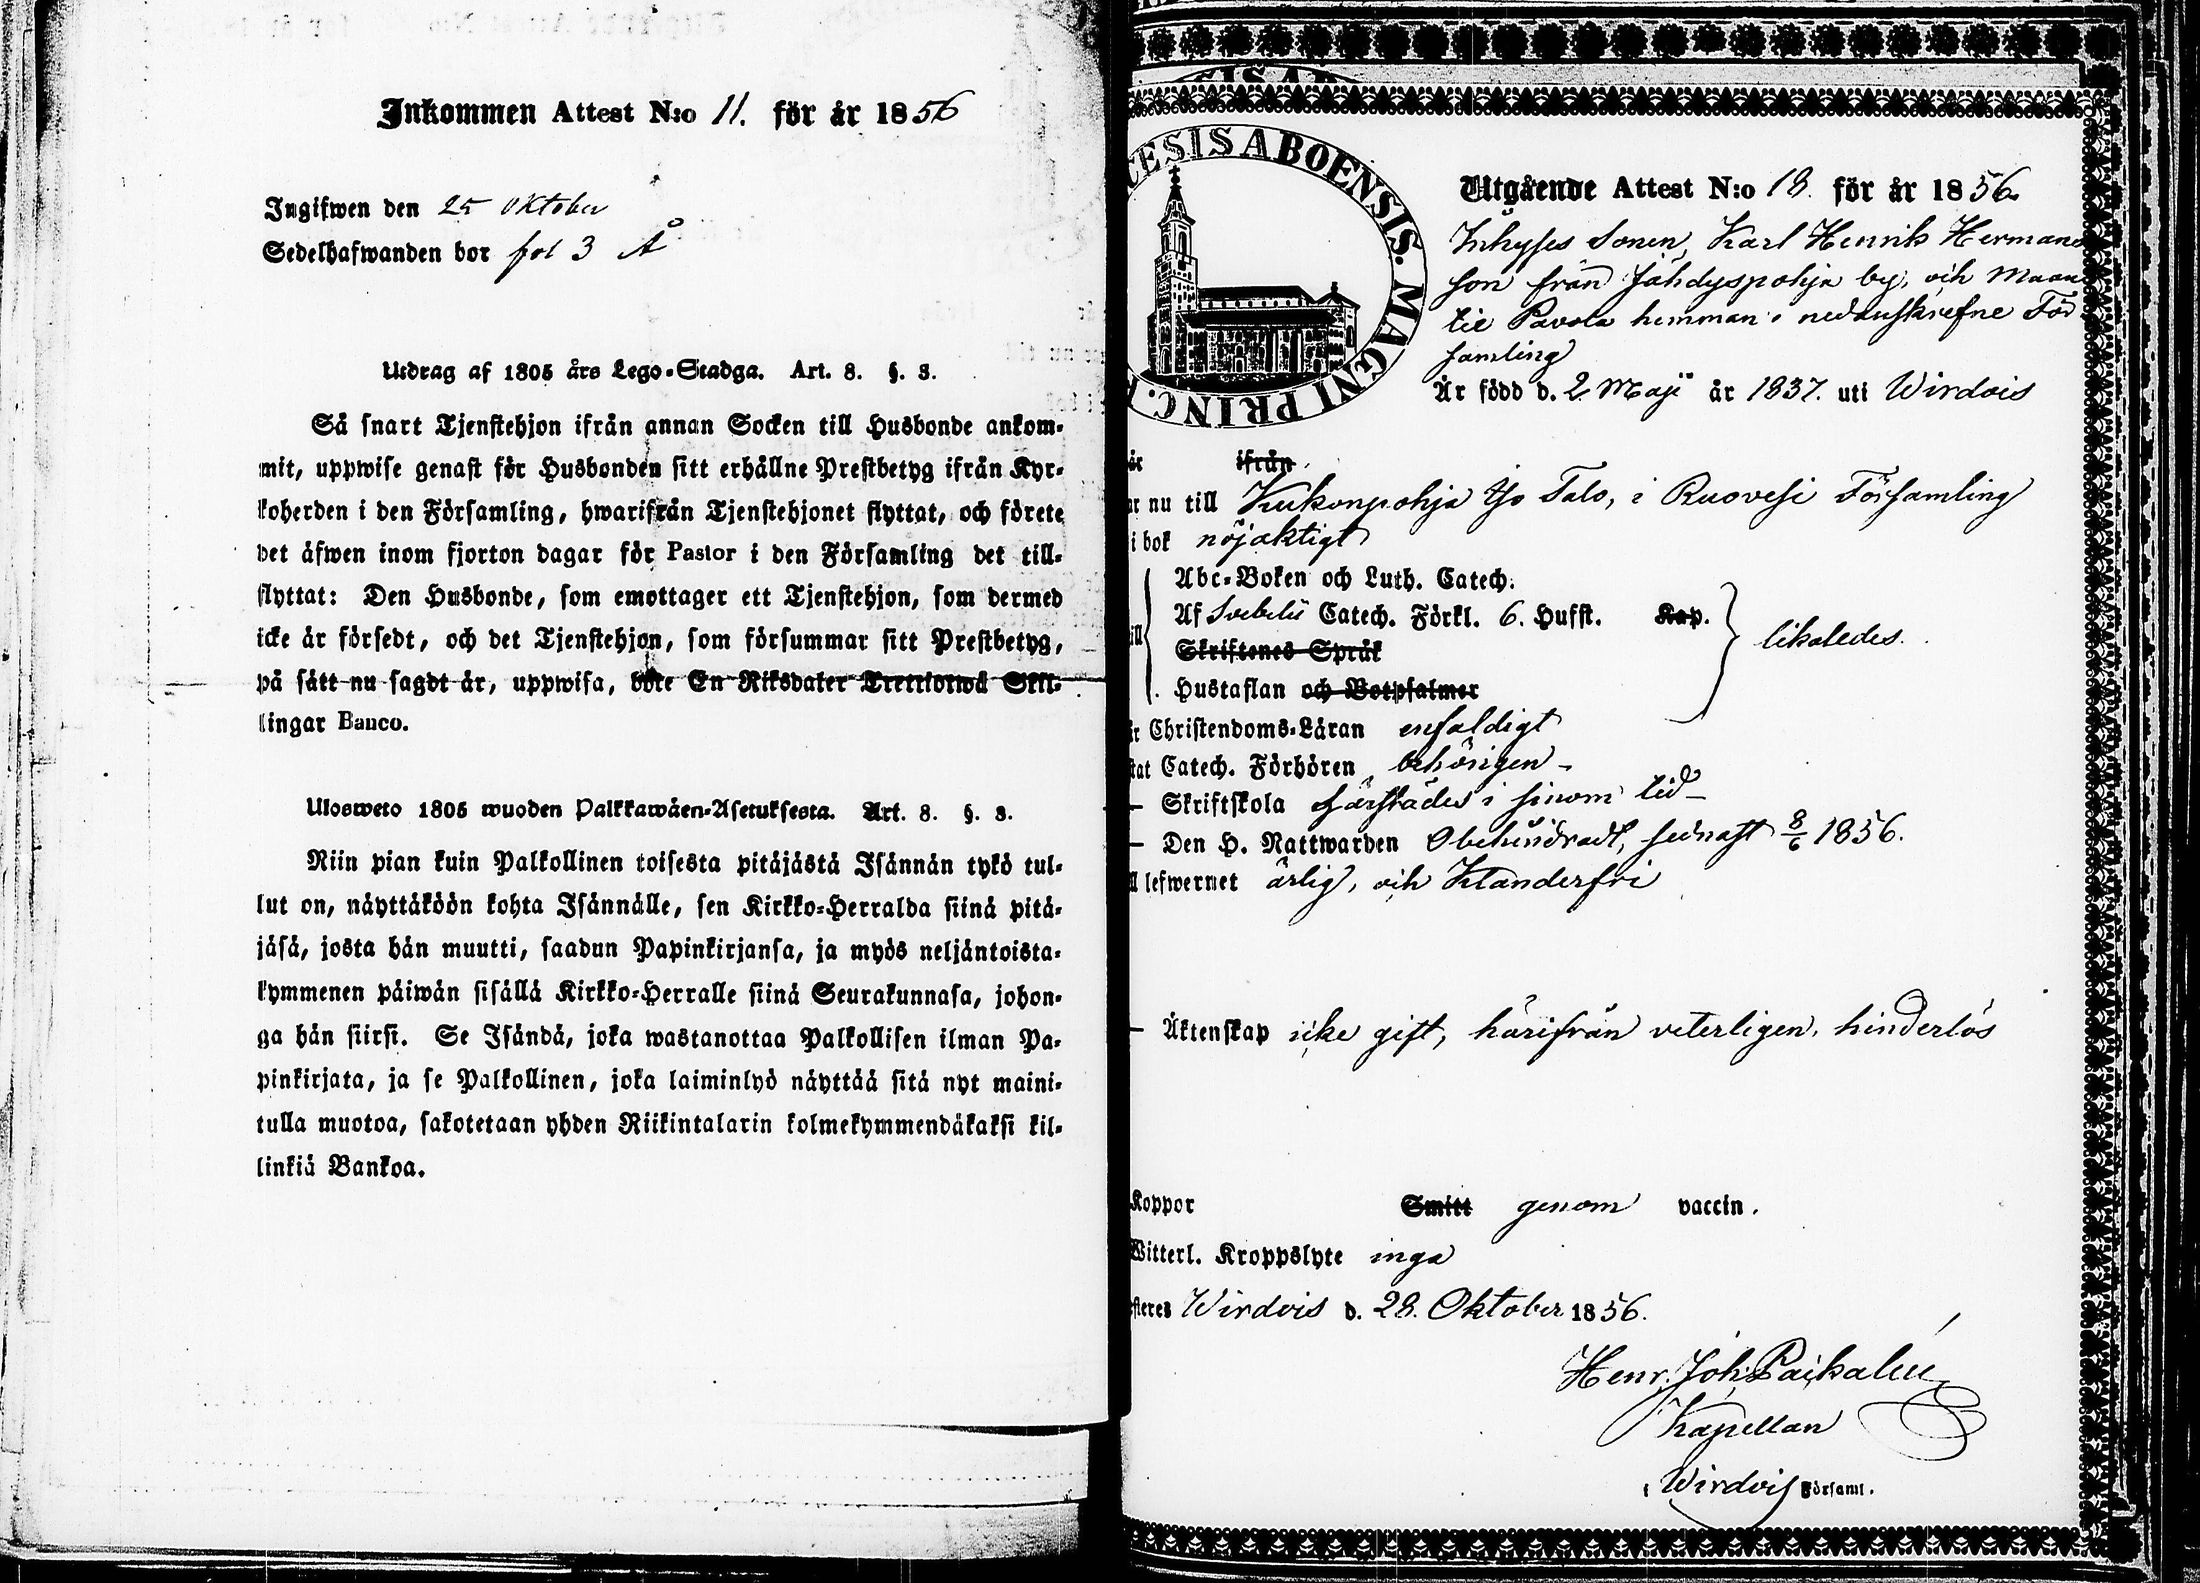 Inkommen Attest N:o 11. för år 1856
Ingifwen den 25 Oktober
Sedelhafwanden bor fol 3 Å
Utdrag af 1805 års Lego-Stadga. Art. 8. §. 3.
Så snart Tjenstehjon ifrån annan Socken till Husbonde ankom-
mit, uppwise genast för Husbonden sitt erhållne Prestbetyg ifrån Kyr-
koherden i den Församling, hwarifrån Tjenstehjonet flyttat, och förete
det äfwen inom fjorton dagar för Pastor i den Församling det till-
flyttat: Den Husbonde, som emottager ett Tjenstehjon, som dermed
icke är försedt, och det Tjenstehjon, som försummar sitt Prestbetyg,
på sätt nu sagdt är, uppwisa, böte En Riksdaler Trettiotwå Skil-
lingar Banco.
Ulosweto 1805 wuoden Palkkawäen-Asetuksesta. Art. 8. §. 3.
Niin pian kuin Palkollinen toisesta pitäjästä Isännän tykö tul-
lut on, näyttäköön kohta Isännälle, sen Kirkko-Herralda siinä pitä-
jäsä, josta hän muutti, saadun Papinkirjansa, ja myös neljäntoista-
kymmenen päiwän sisällä Kirkko-Herralle siinä Seurakunnasa, johon-
ga hän siirsi. Se Isändä, joka wastanottaa Palkollisen ilman Pa-
pinkirjata, ja se Palkollinen, joka laiminlyö näyttää sitä nyt maini-
tulla muotoa, sakotetaan yhden Riikintalarin kolmekymmendäkaksi kil-
linkiä Bankoa.
CESIS ABOENSIS. MAGNI PRINC.
Utgående Attest N:o 18. för år 1856
Inhyses Sonen, Karl Henrik Hermans
son från Jähdyspohja by, och Maan
tie Pavola hemman i nedanskrefne För
samling
Är född d. 2 Maji år 1837. uti Wirdois
är ifrån
ar nu till Kukonpohja Yo Talo, i Ruovesi Församling
i bok nöjaktigt
Abc-Boken och Luth. Catech.
Af Svebelii Catech. Förkl. 6. Hufst. Kap.
Skriftenes Språk
Hustaflan och Botpsalmer
likaledes.
är Christendoms-Läran enfaldigt
stat Catech. Förhören behörigen –
– Skriftskola härstädes i sinom tid –
– Den H. Nattwarden Obehindradt, sednast 8/6 1856.
ll lefwernet ärlig, och Klanderfri
– Äktenskap icke gift, härifrån veterligen, hinderlös
Koppor Smitt genom vaccin.
Witterl. Kroppslyte inga
esteres Wirdois d. 28. Oktober 1856.
Henr. Joh. Paikalén
Kapellan
i Wirdois Församl.